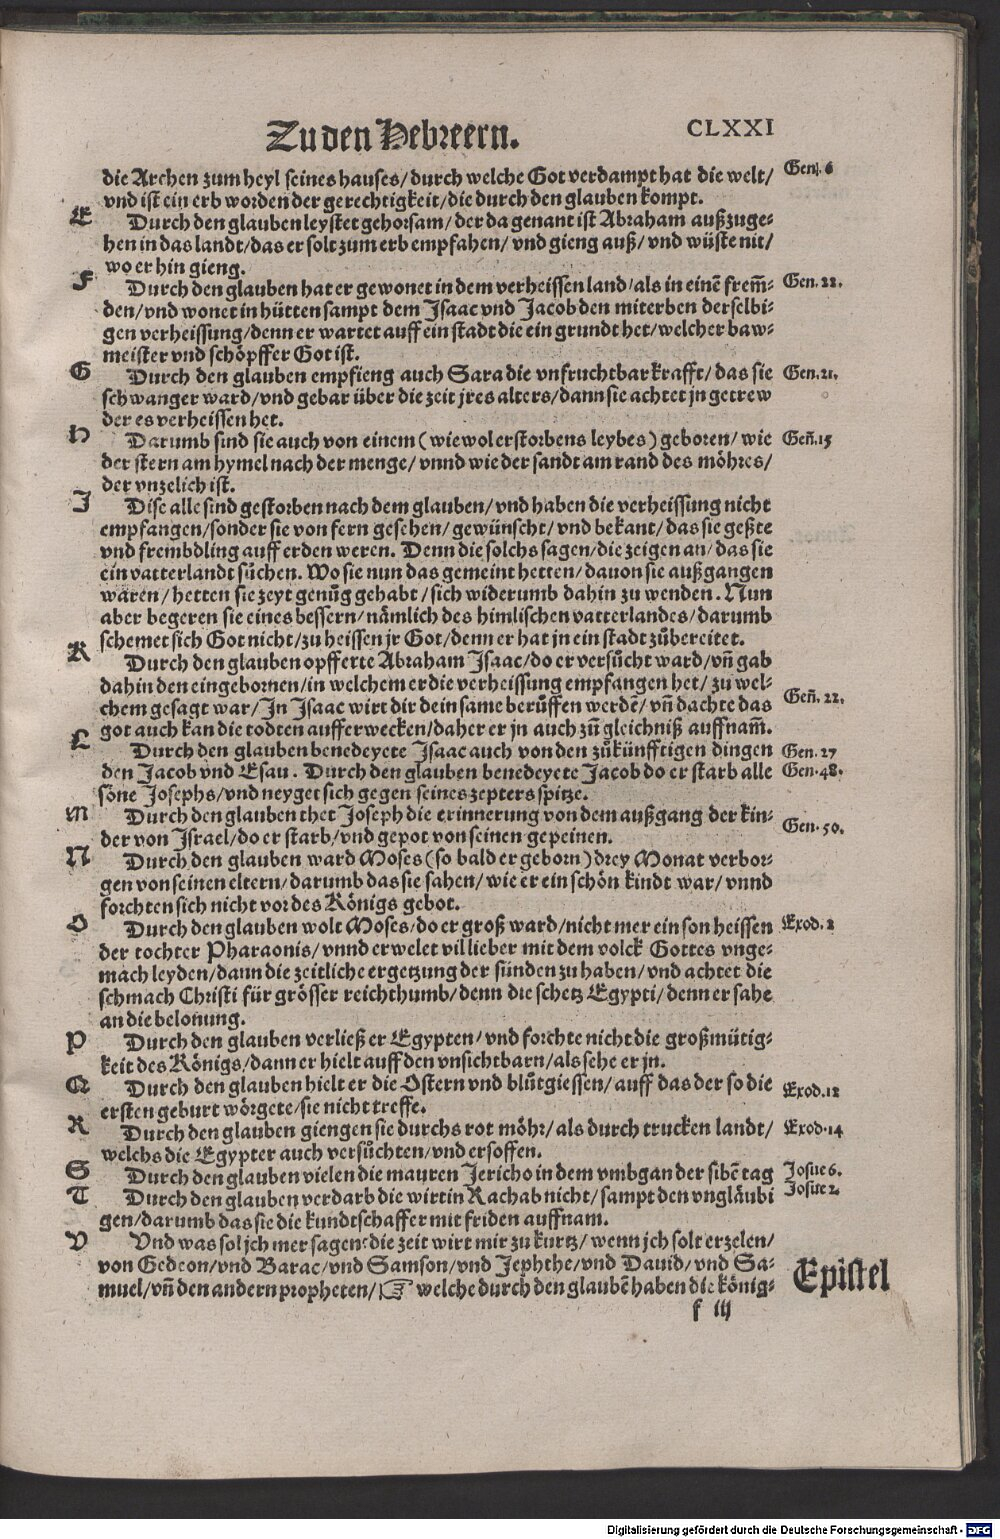 Zu den Hebreern.
CLXXI
die Archen zum heyl seines hauses/ durch welche Got verdampt hat die welt/
Gen. 6
vnd ist ein erb worden der gerechtigkeit/ die durch den glauben kompt.
E
Durch den glauben leystet gehorsam/ der da genant ist Abraham außzuge-
hen in das landt/ das er solt zum erb empfahen/ vnd gieng auß/ vnd wüste nit/
wo er hin gieng.
F
Durch den glauben hat er gewonet in dem verheissen land/ als in einē frem̄-
Gen. 22.
den/ vnd wonet in hütten sampt dem Isaac vnd Jacob den miterben derselbi-
gen verheissung/ denn er wartet auff ein stadt die ein grundt het/ welcher baw-
meister vnd schöpffer Got ist.
G
Durch den glauben empfieng auch Sara die vnfruchtbar krafft/ das sie
Gen. 21.
schwanger ward/ vnd gebar über die zeit jres alters/ dann sie achtet jn getrew
der es verheissen het.
H
Darumb sind sie auch von einem (wiewol erstorbens leybes) geboren/ wie
Geñ. 15
der stern am hymel nach der menge/ vnnd wie der sandt am rand des möhres/
der vnzelich ist.
I
Dise alle sind gestorben nach dem glauben/ vnd haben die verheissung nicht
empfangen/ sonder sie von fern gesehen/ gewünscht/ vnd bekant/ das sie geßte
vnd frembdling auff erden weren. Denn die solchs sagen/ die zeigen an/ das sie
ein vatterlandt sůchen. Wo sie nun das gemeint hetten/ dauon sie außgangen
wären/ hetten sie zeyt genůg gehabt/ sich widerumb dahin zu wenden. Nun
aber begeren sie eines bessern/ nämlich des himlischen vatterlandes/ darumb
schemet sich Got nicht/ zu heissen jr Got/ denn er hat jn ein stadt zůbereitet.
K
Durch den glauben opfferte Abraham Isaac/ do er versůcht ward/ vñ gab
dahin den eingebornen/ in welchem er die verheissung empfangen het/ zu wel-
chem gesagt war/ In Isaac wirt dir dein same berůffen werdē/ vñ dachte das
Geñ. 22.
got auch kan die todten aufferwecken/ daher er jn auch zů gleichniß auffnam̄.
L
Durch den glauben benedeyete Isaac auch von den zůkünfftigen dingen
Gen. 27
den Jacob vnd Esau. Durch den glauben benedeyete Jacob do er starb alle
Gen. 48.
söne Josephs/ vnd neyget sich gegen seines zepters spitze.
M
Durch den glauben thet Joseph die erinnerung von dem außgang der kin-
der von Israel/ do er starb/ vnd gepot von seinen gepeinen.
Gen. 50.
N
Durch den glauben ward Moses (so bald er geborn) drey Monat verbor-
gen von seinen eltern/ darumb das sie sahen/ wie er ein schön kindt war/ vnnd
forchten sich nicht vor des Königs gebot.
O
Durch den glauben wolt Moses/ do er groß ward/ nicht mer ein son heissen
Exod. 2
der tochter Pharaonis/ vnnd erwelet vil lieber mit dem volck Gottes vnge-
mach leyden/ dann die zeitliche ergetzung der sünden zu haben/ vnd achtet die
schmach Christi für grösser reichthumb/ denn die schetz Egypti/ denn er sahe
an die belonung.
P
Durch den glauben verließ er Egypten/ vnd forchte nicht die großmütig-
keit des Königs/ dann er hielt auff den vnsichtbarn/ als sehe er jn.
Q
Durch den glauben hielt er die Ostern vnd blůtgiessen/ auff das der so die
Exod. 12
ersten geburt wörgete/ sie nicht treffe.
R
Durch den glauben giengen sie durchs rot möhr/ als durch trucken landt/
Exod. 14
welchs die Egypter auch versůchten/ vnd ersoffen.
S
Durch den glauben vielen die mauren Jericho in dem vmbgan der sibē tag
Josue 6.
T
Durch den glauben verdarb die wirtin Rachab nicht/ sampt den vngläubi
Josue 2
gen/ darumb das sie die kundtschaffer mit friden auffnam.
V
Vnd was sol jch mer sagen? die zeit wirt mir zu kurtz/ wenn jch solt erzelen/
von Gedeon/ vnd Barac/ vnd Samson/ vnd Jephthe/ vnd Dauid/ vnd Sa-
Epistel
muel/ vñ den andern propheten/ ☞ welche durch den glaubē haben die könig-
f iij
Digitalisierung gefördert durch die Deutsche Forschungsgemeinschaft - DFG